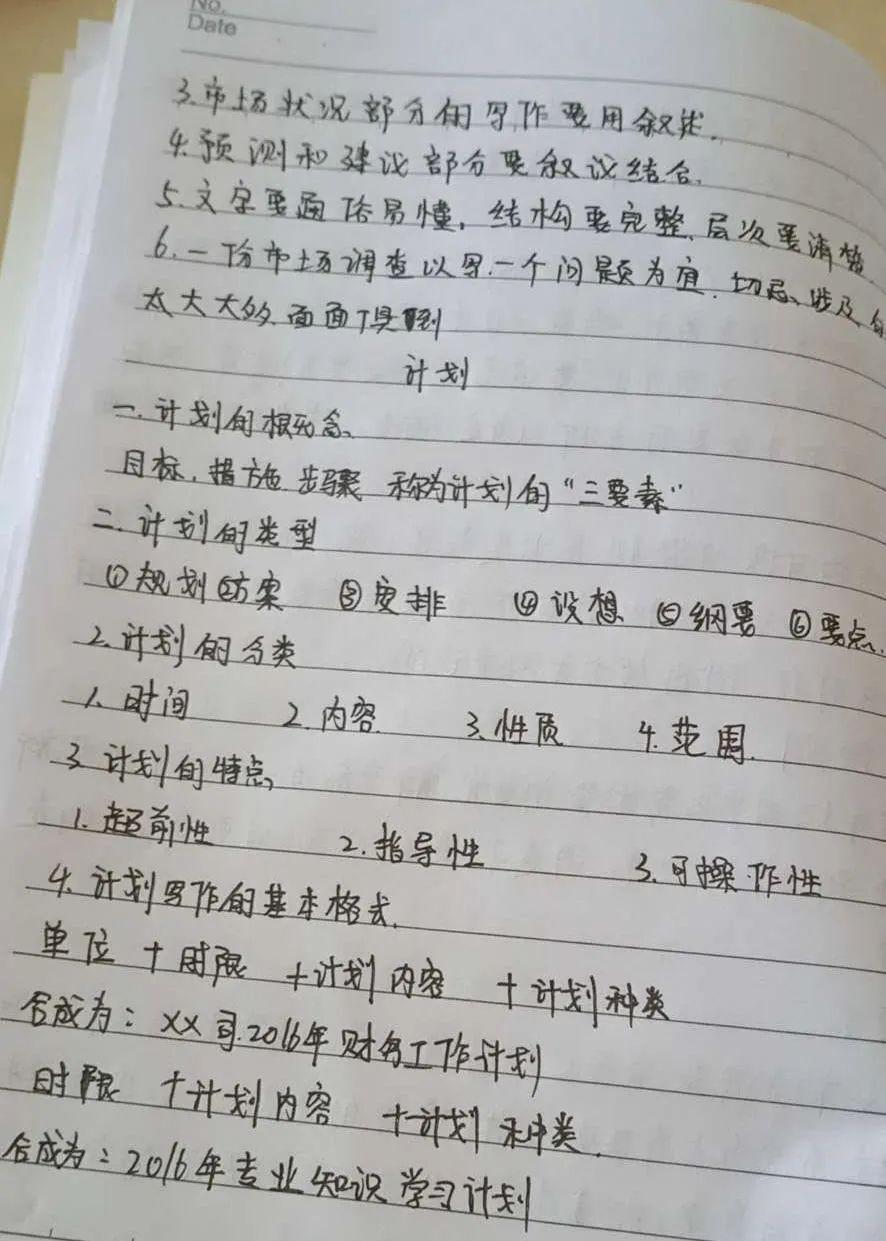 No.
Date
3.市场状况部分的写作要用叙述.
4.预测和建议部分要叙议结合.
5.文字要通俗易懂,结构要完整、层次要清楚
6.一份市场调查以写一个问题为宜.切忌涉及
太大太多面面俱到
计划
一.计划的概念
目标.措施 步骤 称为计划的“三要素”
二.计划的类型
①规划 ②方案 ③安排 ④设想 ⑤纲要 ⑥要点.
2.计划的分类
1.时间 2.内容 3.性质 4.范围.
3.计划的特点
1.超前性 2.指导性 3.可操作性
4.计划写作的基本格式.
单位 + 时限 +计划内容 +计划种类
合成为: XX司2016年财务工作计划
时限 +计划内容 +计划种类.
合成为:2016年专业知识学习计划